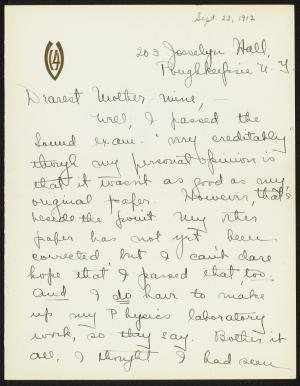 Sept. 22, 1912
203 Josselyn Hall,
Poughkeepsie N. Y
Dearest Mother-mine, —
Well, I passed the
sound exam. "very creditably"
though my personal opinion is
that it wasn't as good as my
original paper. However, that's
beside the point. My other
paper has not yet been
corrected, but I can't dare
hope that I passed that, too.
And I do have to make
up my Physics laboratory
work, so they say. Bother it
all, I thought I had seen